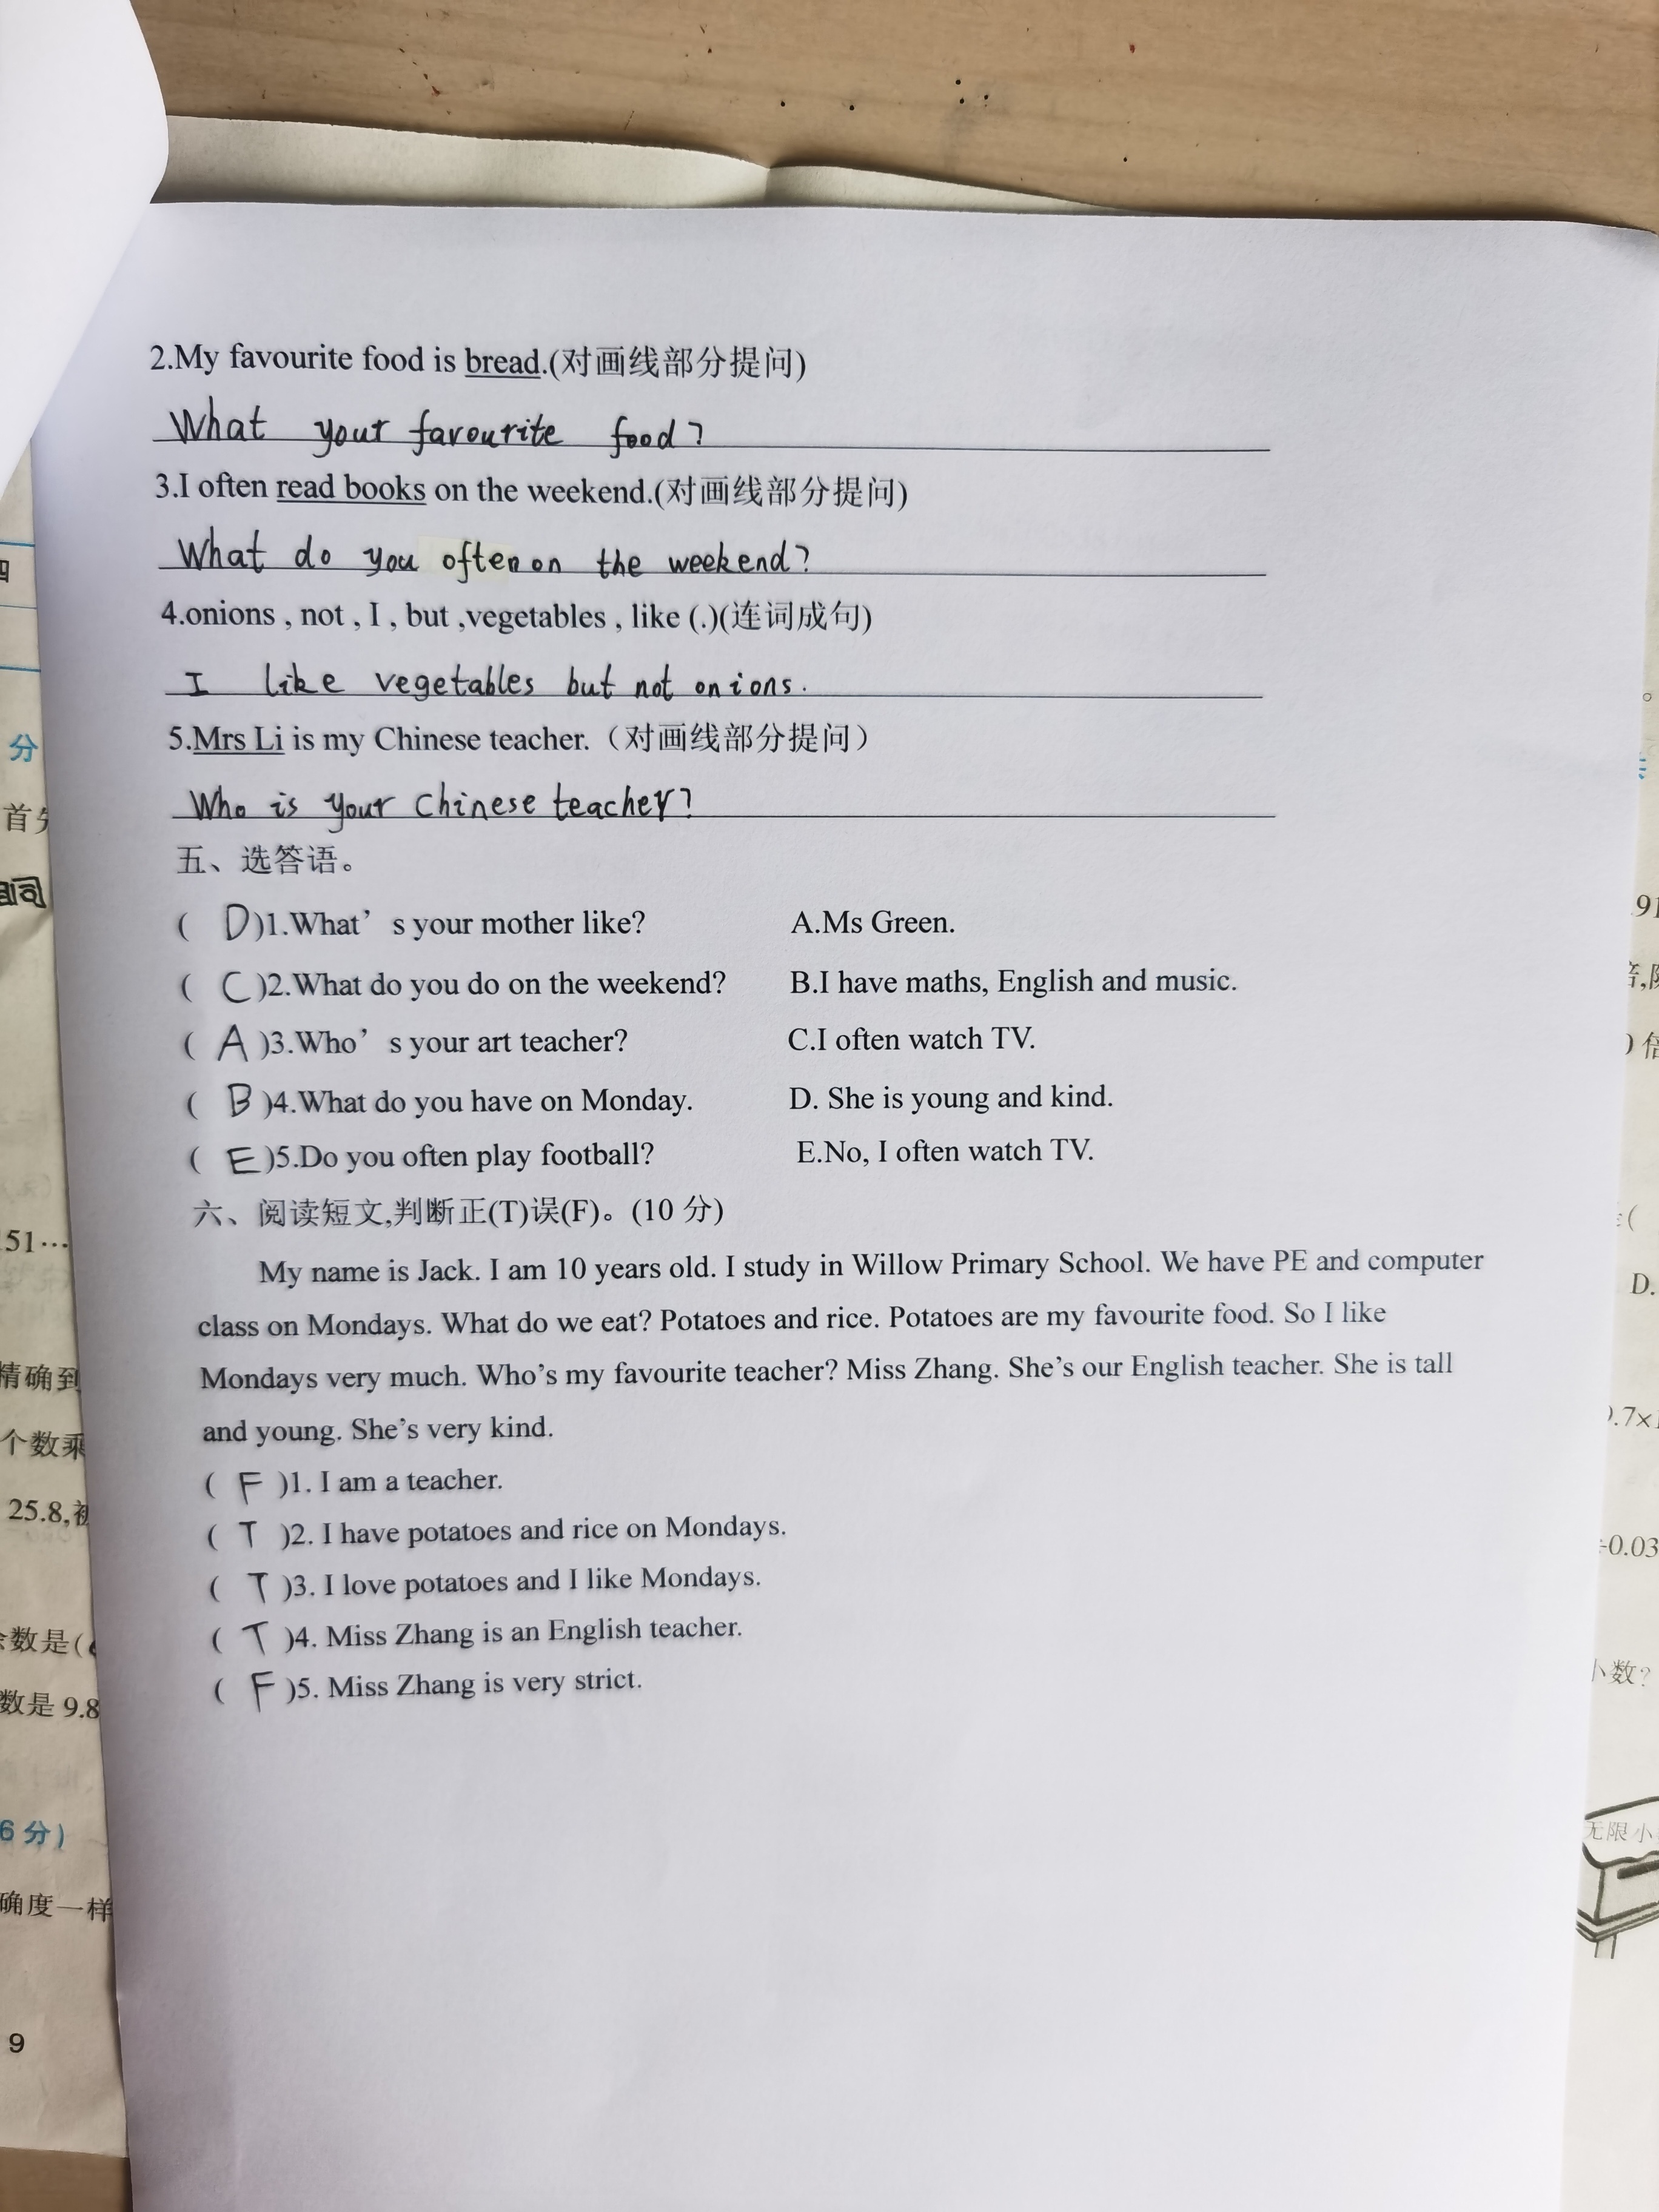 2.My favourite food is bread.(对画线部分提问)
What your favourite food?
3.I often read books on the weekend.(对画线部分提问)
What do you often on the weekend?
4.onions , not , I , but ,vegetables , like (.)(连词成句)
I like vegetables but not onions.
5.Mrs Li is my Chinese teacher.（对画线部分提问）
Who is your Chinese teacher?
五、选答语。
( D )1.What’s your mother like? A.Ms Green.
( C )2.What do you do on the weekend? B.I have maths, English and music.
( A )3.Who’s your art teacher? C.I often watch TV.
( B )4.What do you have on Monday. D. She is young and kind.
( E )5.Do you often play football? E.No, I often watch TV.
六、阅读短文,判断正(T)误(F)。(10 分)
My name is Jack. I am 10 years old. I study in Willow Primary School. We have PE and computer
class on Mondays. What do we eat? Potatoes and rice. Potatoes are my favourite food. So I like
Mondays very much. Who’s my favourite teacher? Miss Zhang. She’s our English teacher. She is tall
and young. She’s very kind.
( F )1. I am a teacher.
( T )2. I have potatoes and rice on Mondays.
( T )3. I love potatoes and I like Mondays.
( T )4. Miss Zhang is an English teacher.
( F )5. Miss Zhang is very strict.
分
首
51…
精确到
个数乘
25.8,
数是(
数是 9.8
6 分)
确度一样
9
91
倍
D.
0.7×
÷0.03
小数?
无限小